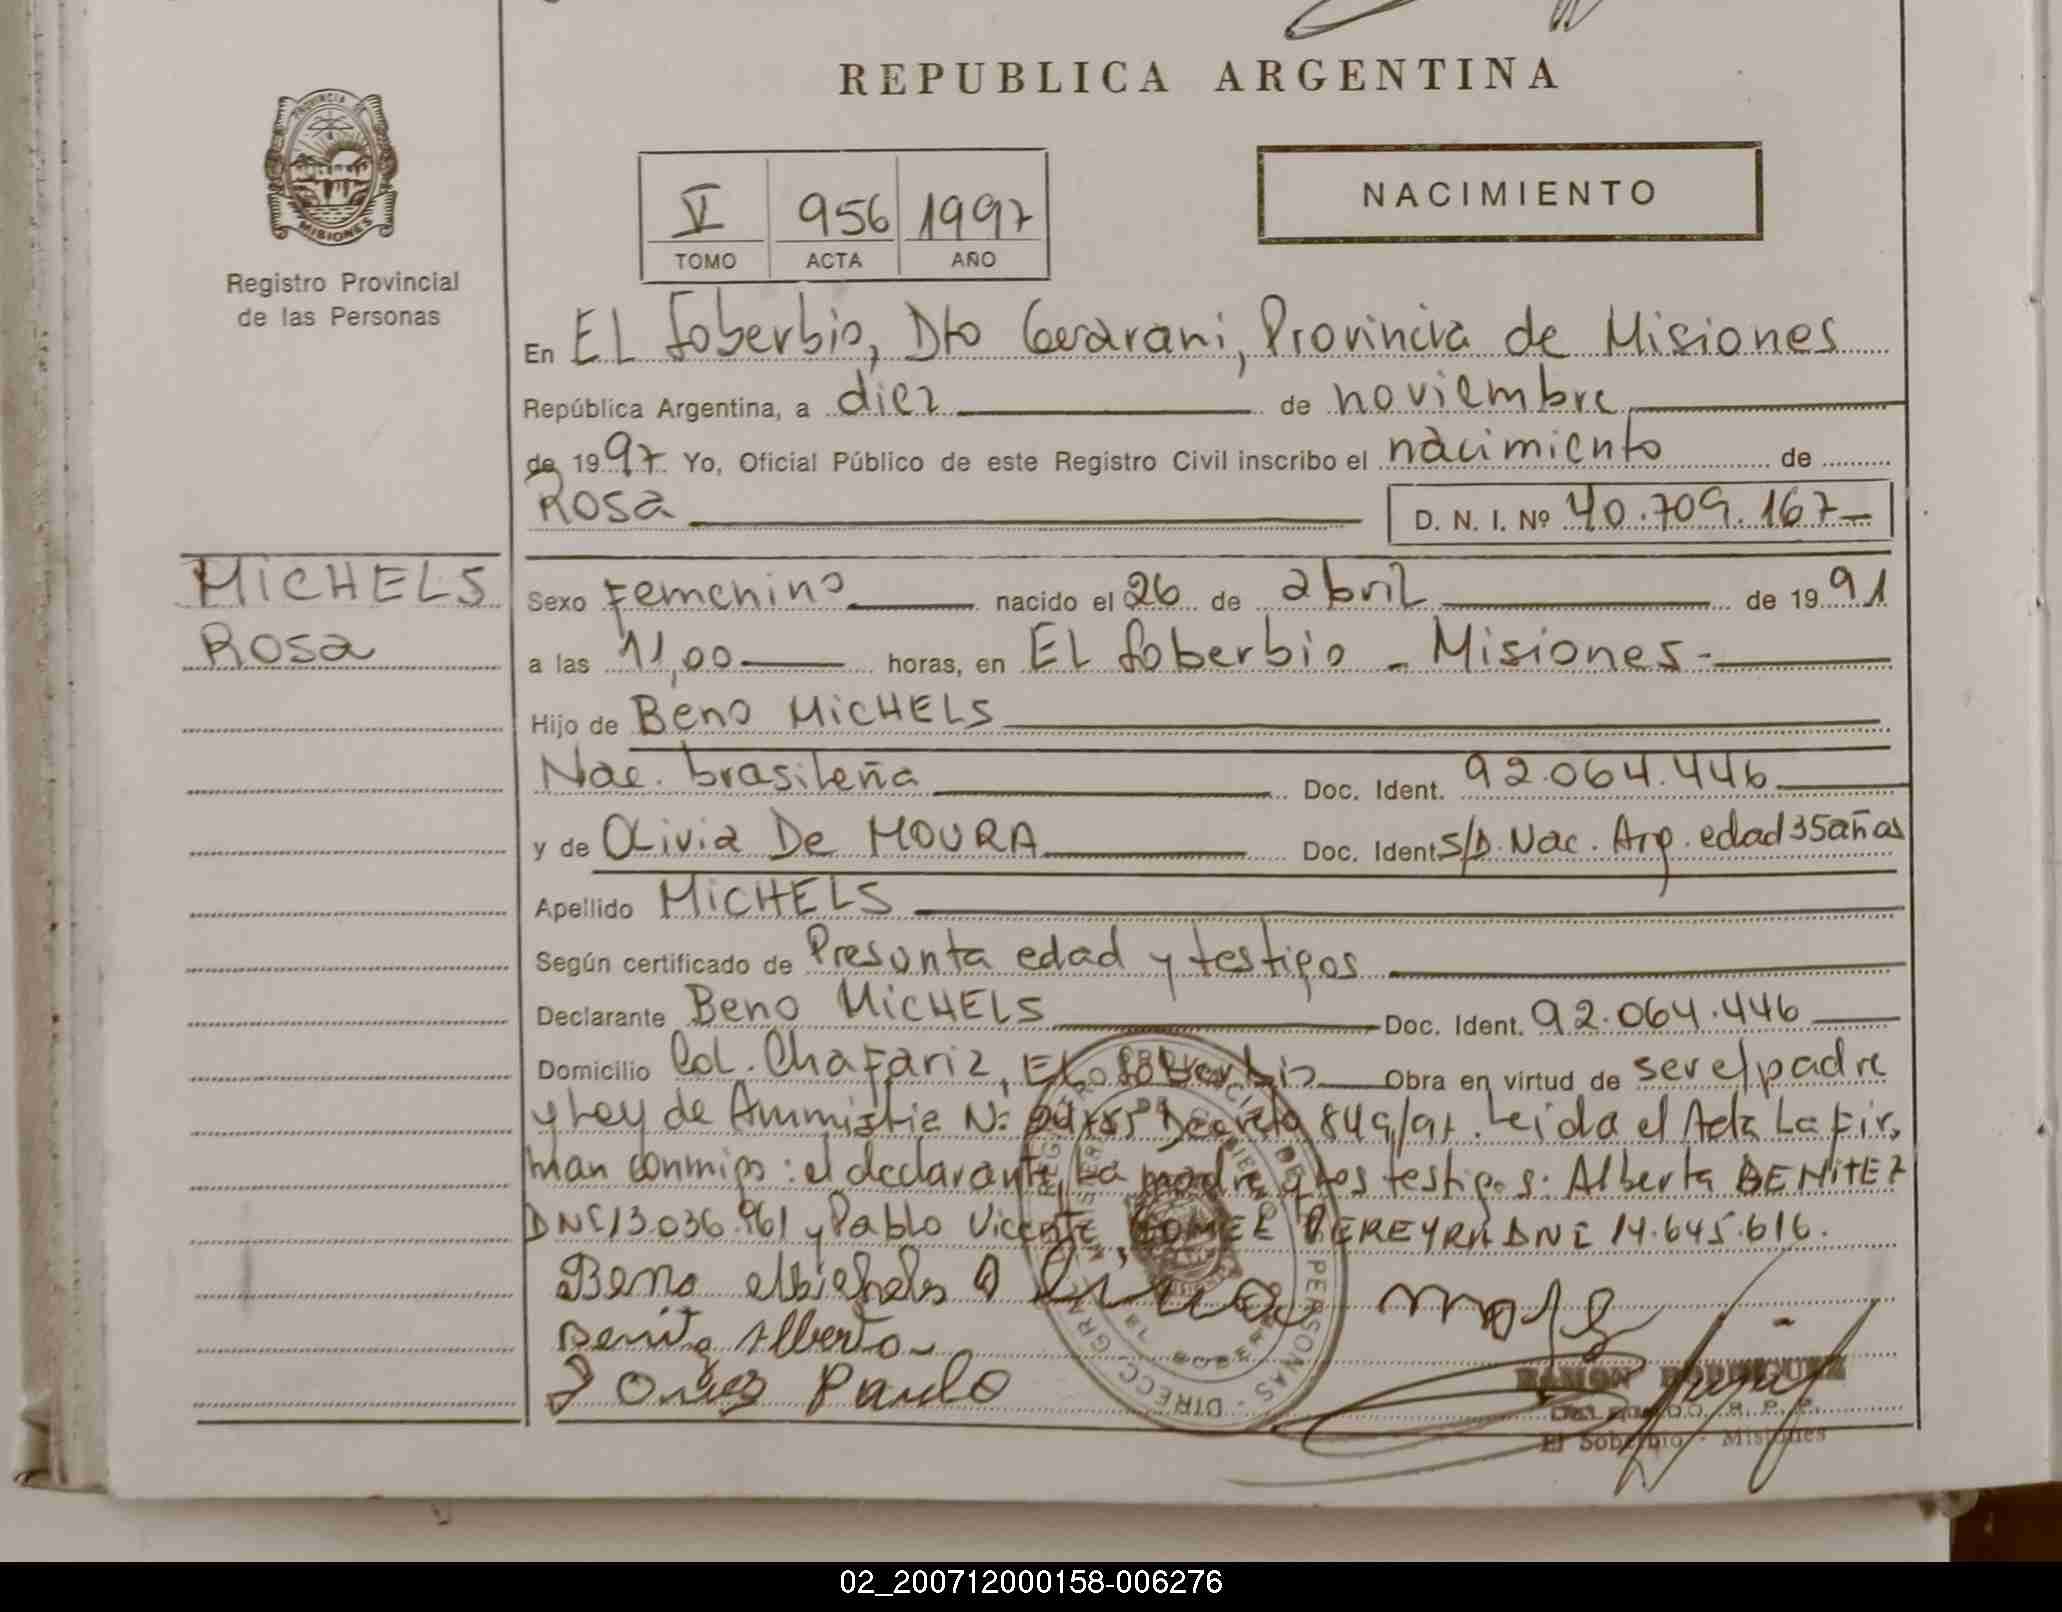 REPUBLICA ARGENTINA
PROVINCIA DE
MISIONES
Registro Provincial
de las Personas
V 956 1997
TOMO ACTA AÑO
NACIMIENTO
En EL Soberbio, Dto Guarani, Provincia de Misiones
República Argentina, a diez de noviembre
de 1997 Yo, Oficial Público de este Registro Civil inscribo el nacimiento de
Rosa D. N. I. Nº 40.709.167
MICHELS
Rosa
Sexo Femenino nacido el 26 de abril de 1991
a las 11,00 horas, en EL Soberbio - Misiones-
Hijo de Beno MICHELS
Nac. brasileña Doc. Ident. 92.064.446
y de Olivia De MOURA Doc. Ident S/D. Nac. Arg. edad 35 años
Apellido MICHELS
Según certificado de Presunta edad y testigos
Declarante Beno MICHELS Doc. Ident. 92.064.446
Domicilio Col. Chafariz, EL Soberbio Obra en virtud de ser el padre
y Ley de Ammistie Nº Decreto Leida el Acta La fir,
man conmigo: el declarante, La madre y los testigos: Alberto BENITEZ
DNI 13.036.961 y Pablo Vicente GOMEZ PEREYRA DNI 14.645.616.
Beno
Benitz Alberto
Paulo
RAMON RODRIGUEZ
DELEGADO R. P. P.
El Soberbio - Misiones
02_200712000158-006276